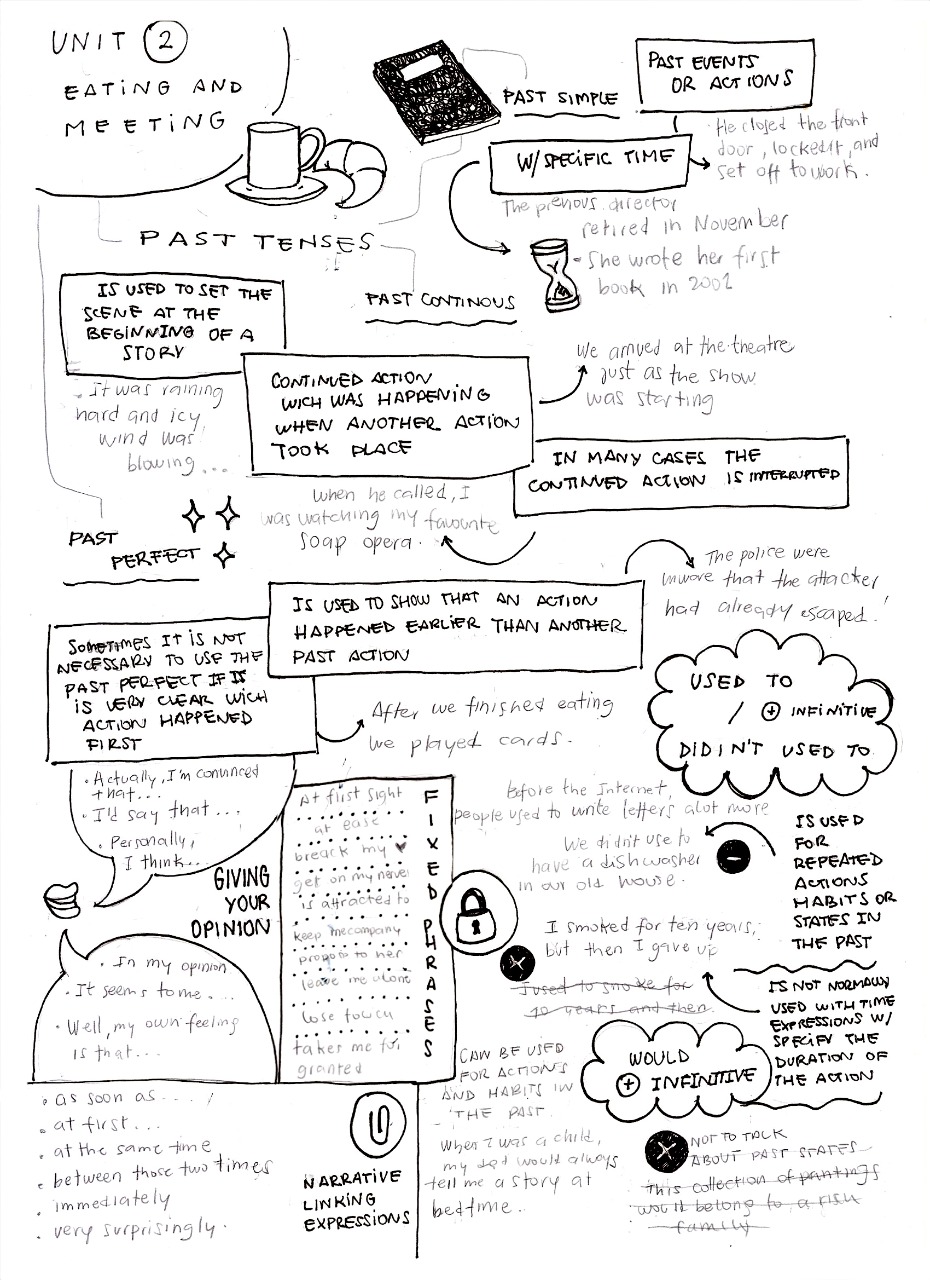 UNIT 2
EATING AND
MEETING
PAST TENSES
PAST SIMPLE
PAST EVENTS
OR ACTIONS
W/ SPECIFIC TIME
· He closed the front
door, locked it, and
set off to work.
The previous director
retired in November
· She wrote her first
book in 2001
PAST CONTINOUS
IS USED TO SET THE
SCENE AT THE
BEGINNING OF A
STORY
· It was raining
hard and icy
wind was
blowing...
CONTINUED ACTION
WICH WAS HAPPENING
WHEN ANOTHER ACTION
TOOK PLACE
We arrived at the theatre
just as the show
was starting
IN MANY CASES THE
CONTINUED ACTION IS INTERRUPTED
When he called, I
was watching my favourite
soap opera.
PAST
PERFECT
IS USED TO SHOW THAT AN ACTION
HAPPENED EARLIER THAN ANOTHER
PAST ACTION
The police were
that the attacker
had already escaped.
SOMETIMES IT IS NOT
NECESSARY TO USE THE
PAST PERFECT IF IS
IS VERY CLEAR WICH
ACTION HAPPENED
FIRST
After we finished eating
we played cards.
USED TO
/ + INFINITIVE
DIDIN'T USED TO
Before the Internet,
people used to write letters alot more
We didn't use to
have a dishwasher
in our old house.
IS USED
FOR
REPEATED
ACTIONS
HABITS OR
STATES IN
THE PAST
I smoked for ten years,
but then I gave up
I used to smoke for
10 years and then
IS NOT NORMALLY
USED WITH TIME
EXPRESSIONS W/
SPECIFY THE
DURATION OF
THE ACTION
WOULD
+ INFINITIVE
CAN BE USED
FOR ACTIONS
AND HABITS IN
THE PAST
When I was a child,
my dad would always
tell me a story at
bedtime.
NOT TO TALK
ABOUT PAST STATES
This collection of paintings
would belong to a rich
family
· Actually, I'm convinced
that...
· I'd say that...
· Personally,
I think...
GIVING
YOUR
OPINION
· In my opinion
· It seems to me...
· Well, my own feeling
is that...
FIXED PHRASES
At first sight
at ease
breack my ♥
get on my nerve
is attracted to
keep me company
propose to her
leave me alone
lose touch
takes me for
granted
NARRATIVE
LINKING
EXPRESSIONS
· as soon as...
· at first...
· at the same time
· between those two times
· immediately
· very surprisingly.